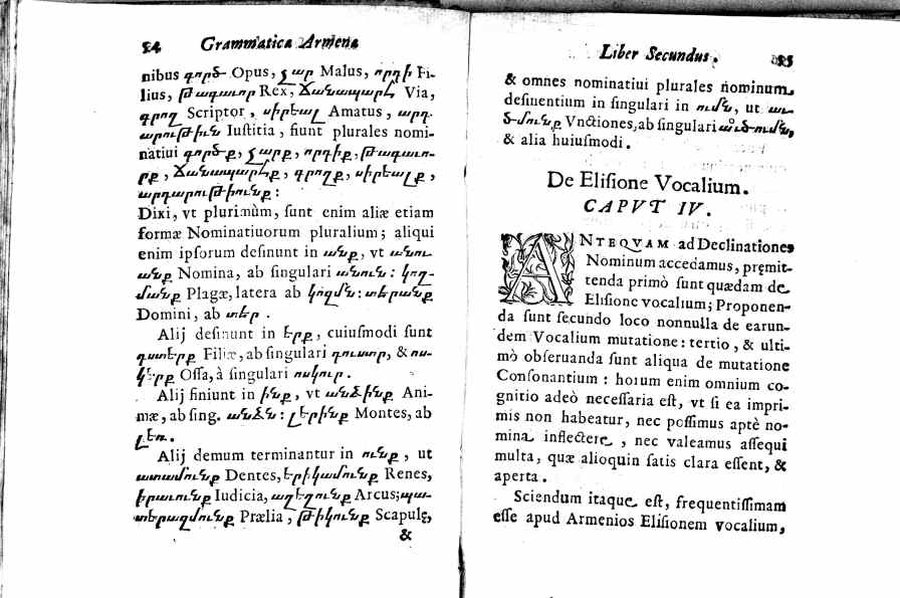 54 Grammatica Armena
nibus գործ Opus, չար Malus, որդի Fi-
lius, թագաւոր Rex, Ճանապարհ Via,
գրող Scriptor, սիրեալ Amatus, արդ-
արութիւն Iustitia, fiunt plurales nomi-
natiui գործք, չարք, որդիք, թագաւո-
րք, Ճանապարհք, գրողք, սիրեալք,
արդարութիւնք:
Dixi, vt plurimùm, sunt enim aliæ etiam
formæ Nominatiuorum pluralium; aliqui
enim ipsorum desinunt in անք, vt անու-
անք Nomina, ab singulari անուն: կող-
մանք Plagæ, latera ab կողմն: տերանք
Domini, ab տեր.
Alij desinunt in երք, cuiusmodi sunt
դստերք Filiæ, ab singulari դուստր, & ոս-
կերք Ossa, à singulari ոսկուր.
Alij finiunt in ինք, vt անձինք Ani-
mæ, ab sing. անձն: լերինք Montes, ab
լեռ.
Alij demum terminantur in ունք, ut
ատամունք Dentes, երիկամունք Renes,
իրաւունք Iudicia, աղեղունք Arcus; պա-
տերազմունք Prælia, թիկունք Scapulę,
&
Liber Secundus. 55
& omnes nominatiui plurales nominum
desinentium in singulari in ումն, ut աւ-
ծմունք Vnctiones, ab singulari աւծումն,
& alia huiusmodi.
De Elisione Vocalium.
CAPVT IV.
ANTEQVAM ad Declinationes
Nominum accedamus, pręmit-
tenda primò sunt quædam de
Elisione vocalium; Proponen-
da sunt secundo loco nonnulla de earun-
dem Vocalium mutatione: tertio, & ulti-
mò obseruanda sunt aliqua de mutatione
Consonantium: horum enim omnium co-
gnitio adeò necessaria est, vt si ea impri-
mis non habeatur, nec possimus aptè no-
mina inflectere, nec valeamus assequi
multa, quæ alioquin satis clara essent, &
aperta.
Sciendum itaque est, frequentissimam
esse apud Armenios Elisionem vocalium,